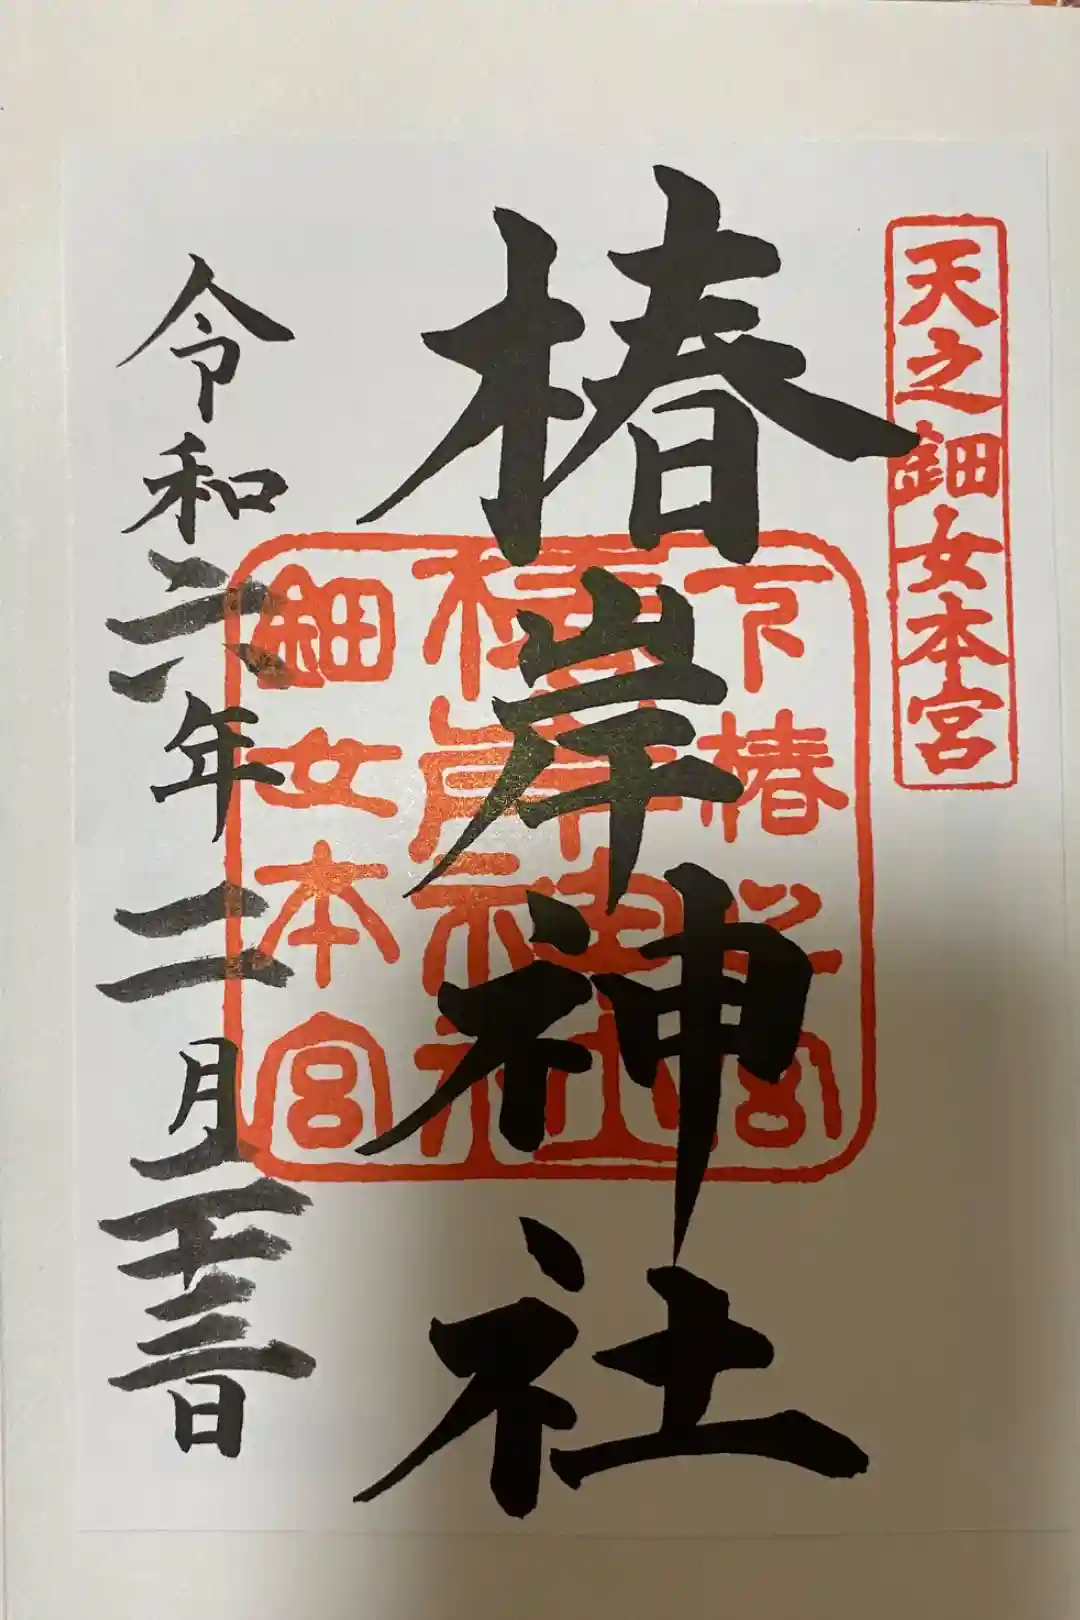 天之鈿女本宮
椿岸神社
下椿
椿岸神社
鈿女本宮
令和六年二月二十三日